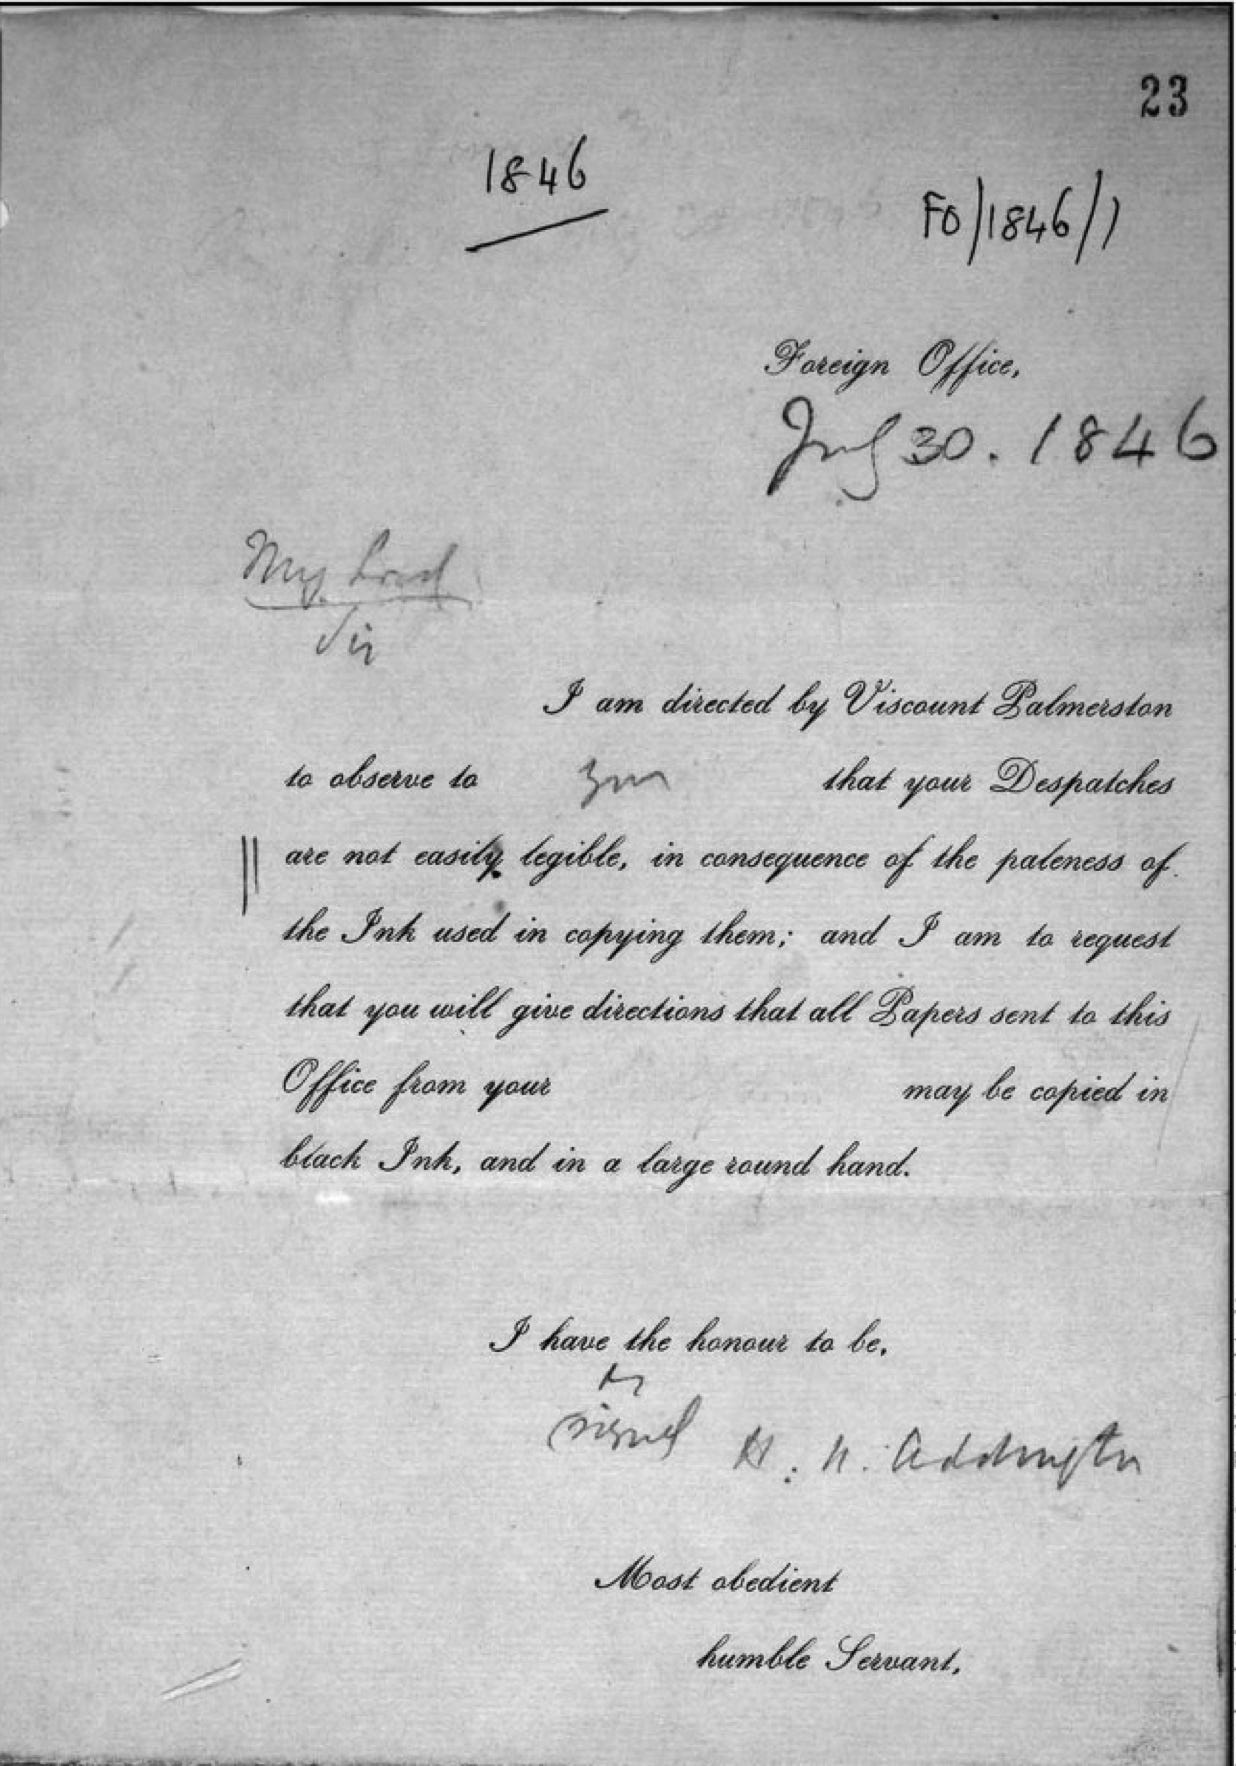 23
1846
FO/1846/1
Foreign Office,
July 30. 1846
My Lord
Sir
I am directed by Viscount Palmerston
to observe to you that your Despatches
are not easily legible, in consequence of the paleness of
the Ink used in copying them; and I am to request
that you will give directions that all Papers sent to this
Office from your may be copied in
black Ink, and in a large round hand.
I have the honour to be,
signed H. U. Addington
Most obedient
humble Servant,